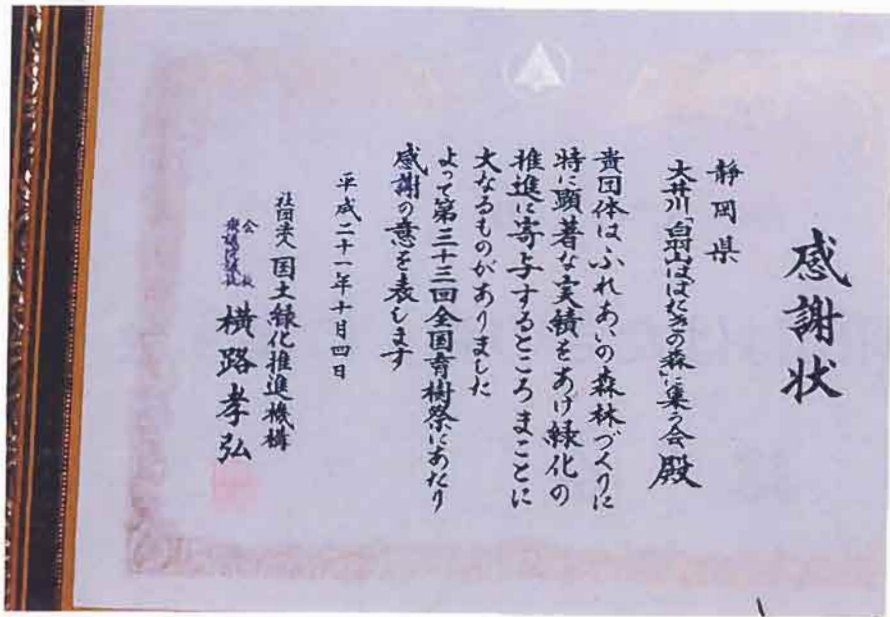 感謝状
静岡県
大井川「白羽山はばたきの森」に集う会 殿
貴団体はふれあいの森林づくりに
特に顕著な実績をあげ緑化の
推進に寄与するところまことに
大なるものがありました
よって第三十三回全国育樹祭にあたり
感謝の意を表します
平成二十一年十月四日
社団法人 国土緑化推進機構
会長
衆議院議長 横路孝弘